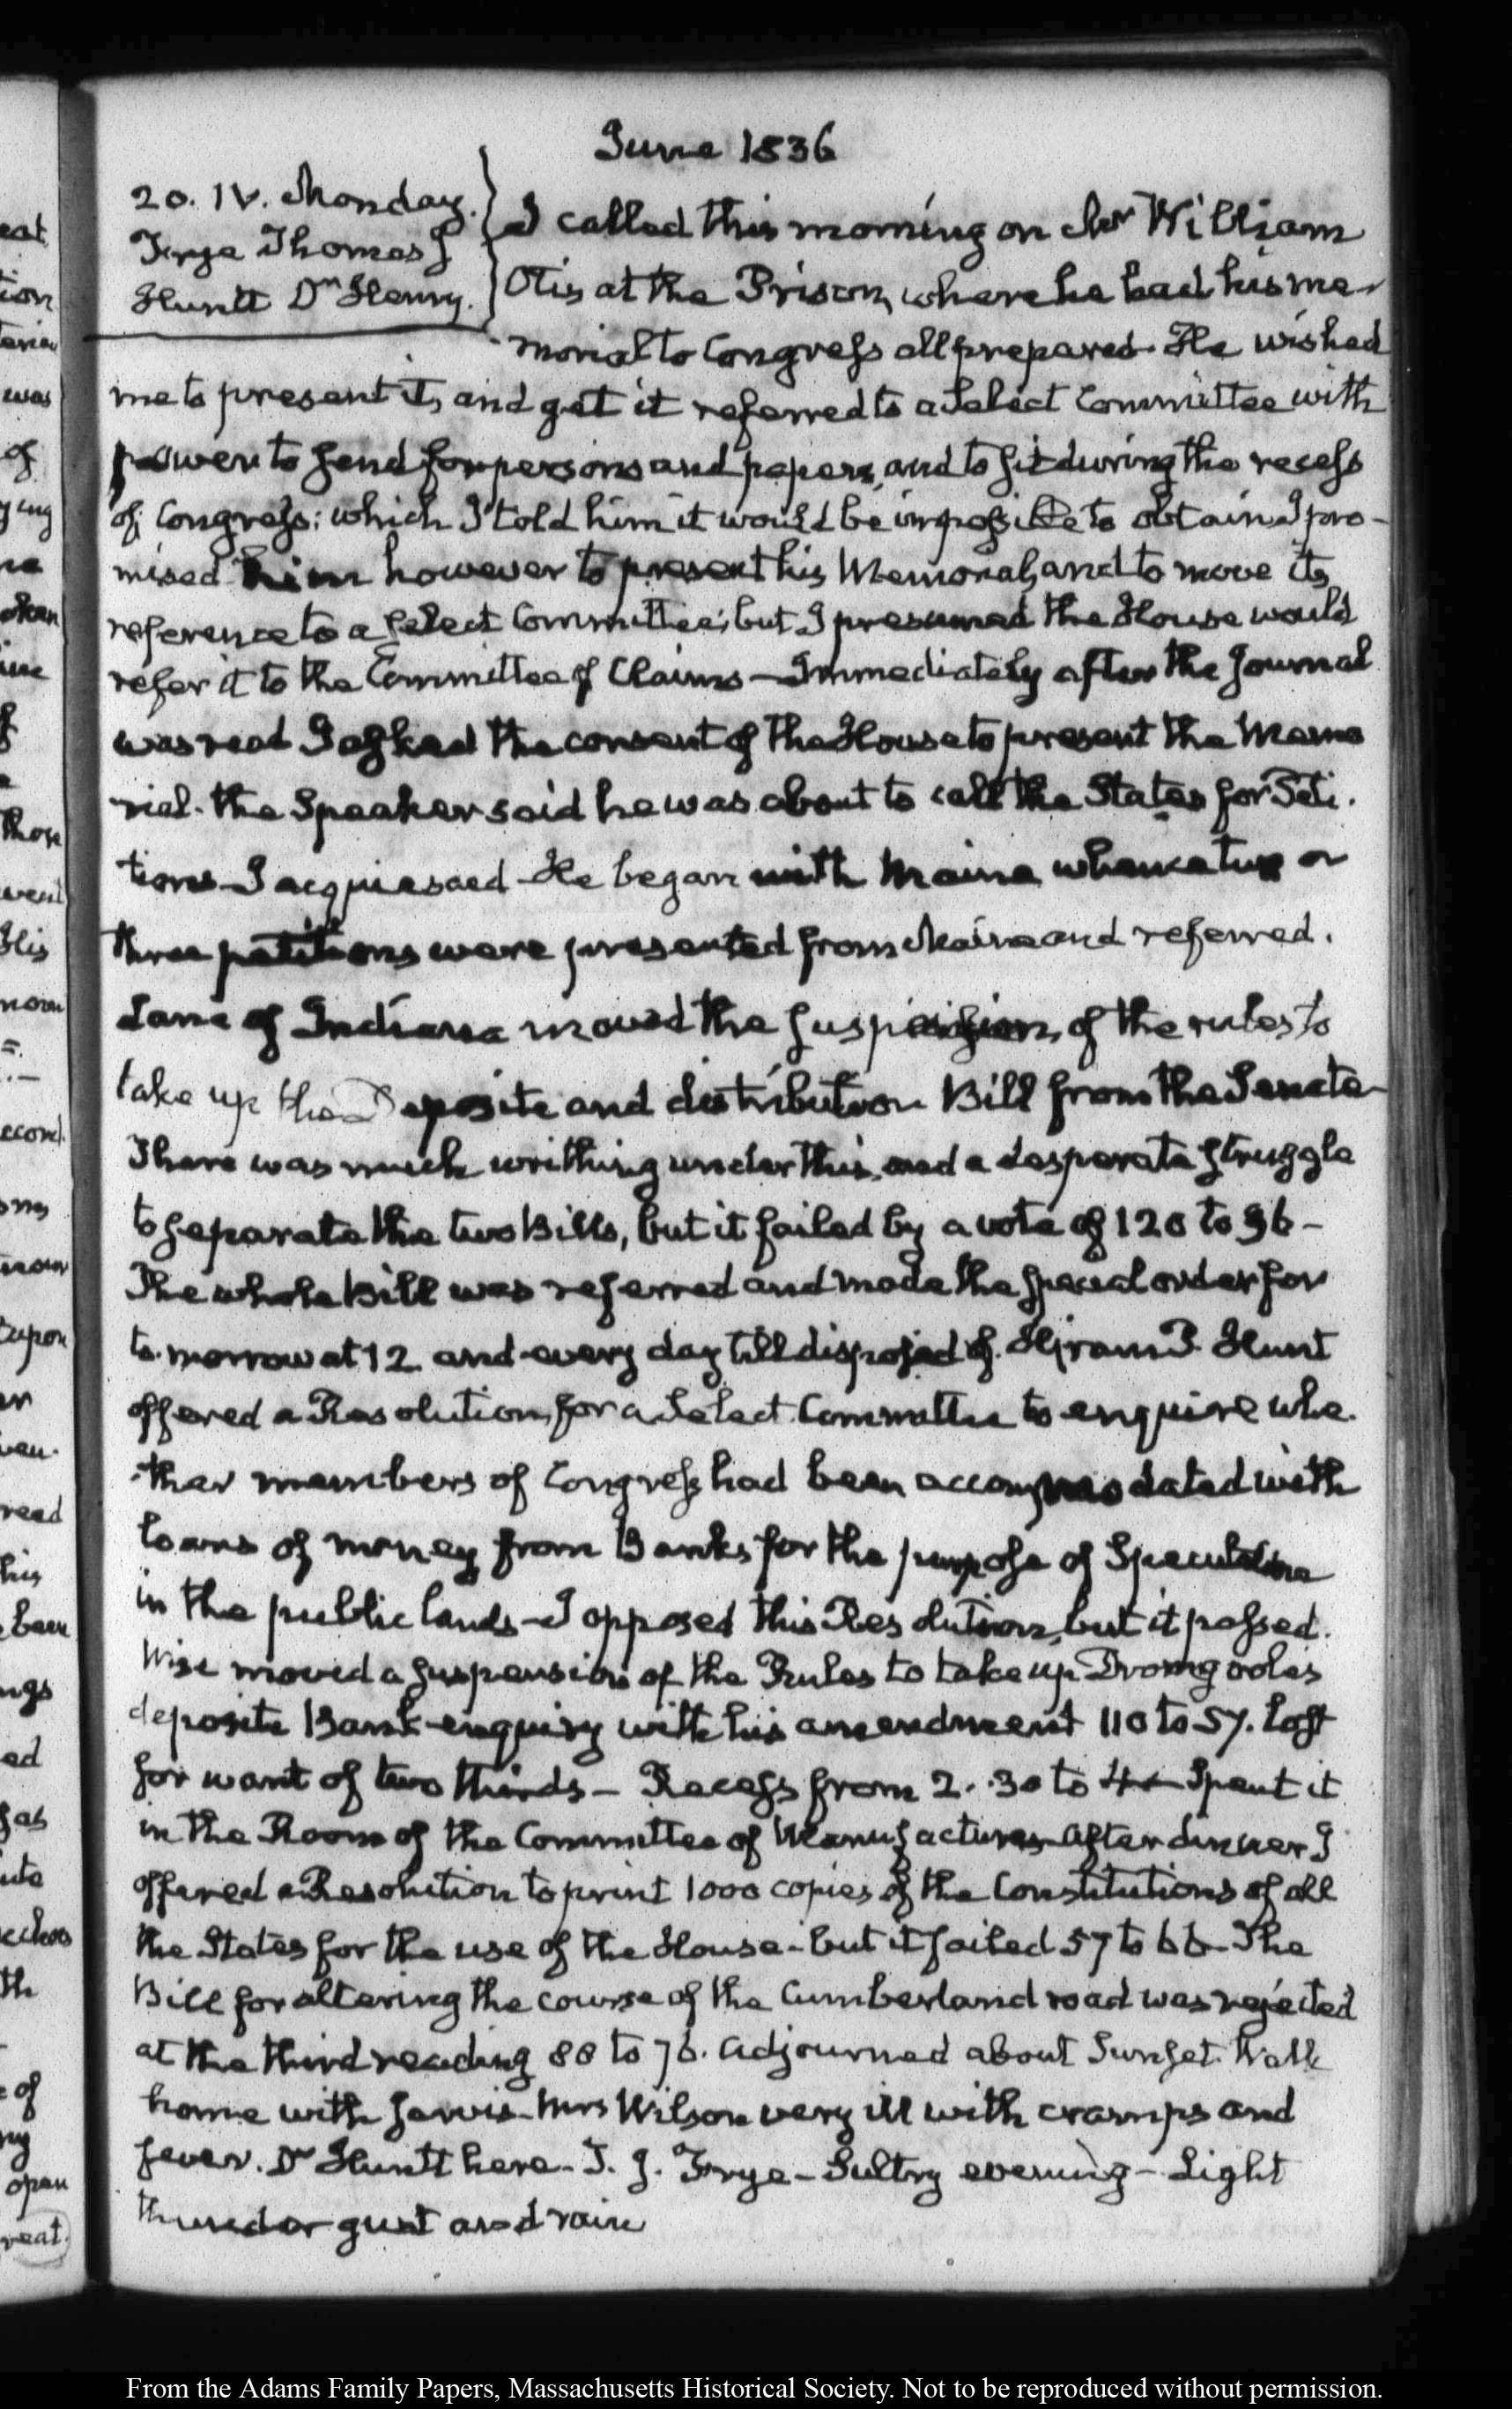 June 1836
20. IV. Monday.
Frye Thomas J
Huntt Dr. Henry.
I called this morning on Mr William
Otis at the Prison, where he had his me-
morial to Congress all prepared. He wished
me to present it, and get it referred to a Select Committee with
power to send for persons and papers, and to sit during the recess
of Congress: which I told him it would be impossible to obtain. I pro-
mised him however to present his Memorial, and to move its
reference to a select Committee; but I presumed the House would
refer it to the Committee of Claims — Immediately after the Journal
was read I asked the consent of the House to present the Memo
rial. the Speaker said he was about to call the States for Peti-
tions — I acquiesced — He began with Maine, whence two or
three petitions were presented from Maine and referred.
Lane of Indiana moved the suspension of the rules to
take up the Deposite and distribution Bill from the Senate—
There was much writhing under this, and a desperate struggle
to separate the two Bills, but it failed by a vote of 120 to 96 —
The whole Bill was referred and made the special order for
to-morrow at 12 and every day till disposed of. Hiram P. Hunt
offered a Resolution, for a Select Committee to enquire whe-
-ther members of Congress had been accommodated with
loans of money from Banks, for the purpose of Speculation
in the public lands — I opposed this Resolution, but it passed.
Wise moved a suspension of the Rules to take up Dromgooles
deposite Bank-enquiry with his amendment 110 to 57. lost
for want of two thirds — Recess from 2..30 to 4 — Spent it
in the Room of the Committee of Manufactures — After dinner I
offered a Resolution to print 1000 copies of the Constitutions of all
the States for the use of the House — but it failed 57 to 66 — The
Bill for altering the course of the Cumberland road was rejected
at the third reading 88 to 76. Adjourned about Sunset. Walk
home with Jarvis — Mrs Wilson very ill with cramps and
fever. Dr Huntt here — T. J. Frye — Sultry evening — Light
thunder gust and rain
From the Adams Family Papers, Massachusetts Historical Society. Not to be reproduced without permission.